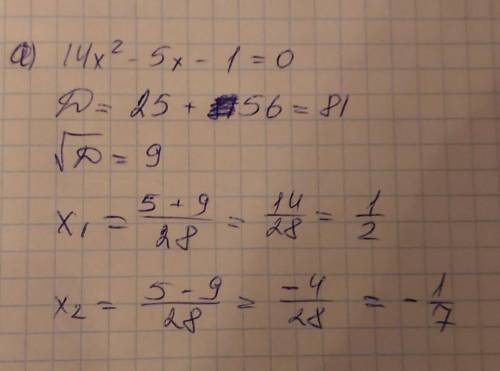 а) 14x² - 5x - 1 = 0
D = 25 + 56 = 81
√D = 9
x₁ = (5 + 9)/28 = 14/28 = 1/2
x₂ = (5 - 9)/28 = -4/28 = -1/7